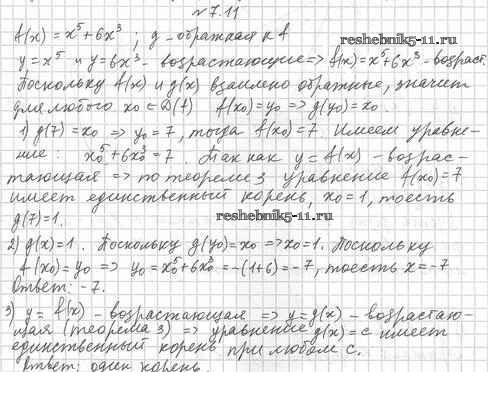 № 7.11
f(x) = x⁵ + 6x³ ; g - обратная к f
reshebnik5-11.ru
y = x⁵ и y = 6x³ - возрастающие => f(x) = x⁵ + 6x³ - возраст.
Поскольку f(x) и g(x) взаимно обратные, значит
для любого x₀ ∈ D(f) f(x₀) = y₀ => g(y₀) = x₀.
1) g(7) = x₀ => y₀ = 7, тогда f(x₀) = 7. Имеем уравне-
ние: x₀⁵ + 6x₀³ = 7. Так как y = f(x) - возрас-
тающая => по теореме 3 уравнение f(x₀) = 7
имеет единственный корень, x₀ = 1, тоесть
g(7) = 1.
reshebnik5-11.ru
2) g(x) = 1. Поскольку g(y₀) = x₀ => x₀ = 1. Поскольку
f(x₀) = y₀ => y₀ = x₀⁵ + 6x₀³ = -(1+6) = -7, тоесть x = -7
Ответ: -7.
3) y = f(x) - возрастающая => y = g(x) - возрастаю-
щая (теорема 3) => уравнение g(x) = c имеет
единственный корень при любом c.
Ответ: один корень.